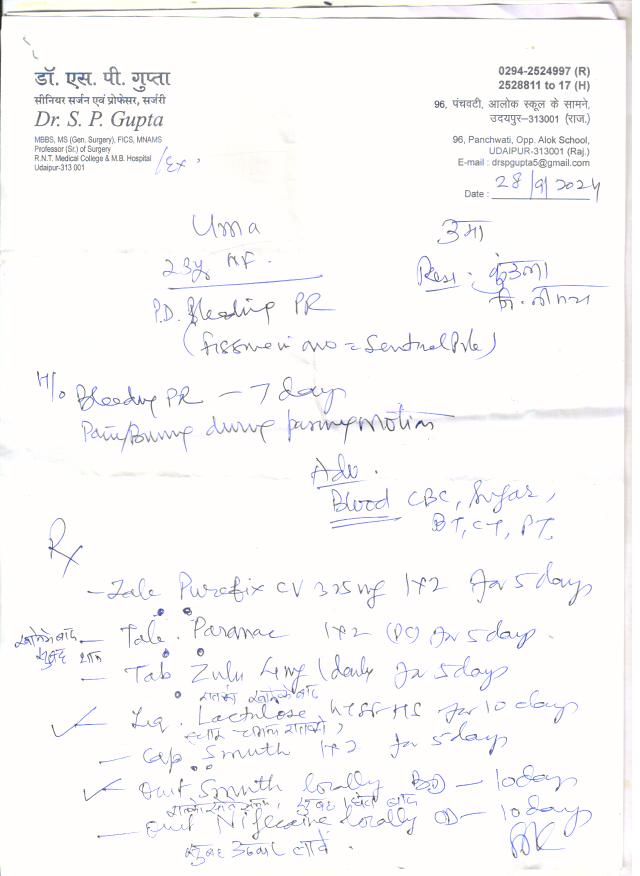 डॉ. एस. पी. गुप्ता
सीनियर सर्जन एवं प्रोफेसर, सर्जरी
Dr. S. P. Gupta
MBBS, MS (Gen. Surgery), FICS, MNAMS
Professor (Sr.) of Surgery
R.N.T. Medical College & M.B. Hospital
Udaipur-313 001
/Ex.
0294-2524997 (R)
2528811 to 17 (H)
96, पंचवटी, आलोक स्कूल के सामने,
उदयपुर–313001 (राज.)
96, Panchwati, Opp. Alok School,
UDAIPUR-313001 (Raj.)
E-mail : drspgupta5@gmail.com
Date : 28/9/2024
Uma उमा
23y HF. Resi :
P.D. Bleeding PR
(fissure in ano = Sentinel Pile)
H/o Bleeding PR – 7 days
Pain/Burning during passing motion
Adv.
Blood CBC, Sugar,
BT, CT, PT.
Rx
Purefix CV 325 mg 1x2 for 5 days
Paranac 1x2 (PC) for 5 days.
खाने के बाद
सुबह शाम
– Tab Zulu 4mg 1 daily for 5 days
खाने के बाद
Liq. Lactulose HS for 10 days
– Cap. Smuth 1x2 for 5 days
Oint Smuth locally BD – 10 days
Oint locally OD – 10 days
सुबह लगावें.